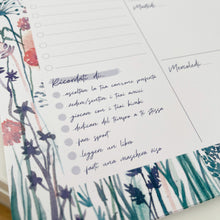 Martedì
Ricordati di:
ascoltare la tua canzone preferita
vedere/sentire i tuoi amici
giocare con i tuoi bimbi
dedicare del tempo a te stessa
fare sport
leggere un libro
farti una maschera viso
Mercoledì